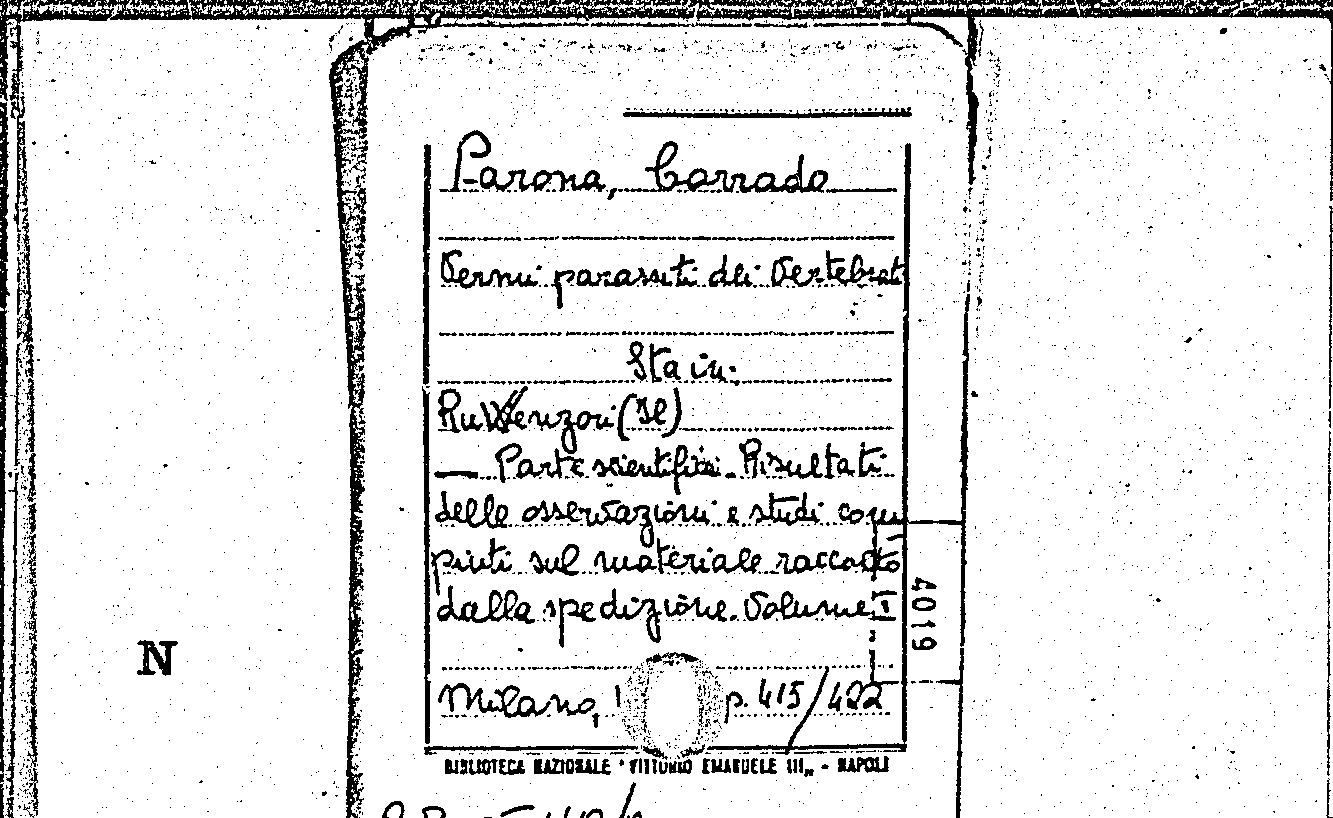 Parona, Corrado
Vermi parassiti dei Vertebrati
Sta in:
Ruwenzori (Il)
— Parte scientifica. Risultati
delle osservazioni e studi com
piuti sul materiale raccolto
dalla spedizione. Volume I
Milano, 1 p. 415/422
BIBLIOTECA NAZIONALE "VITTORIO EMANUELE III„ - NAPOLI
4019
N